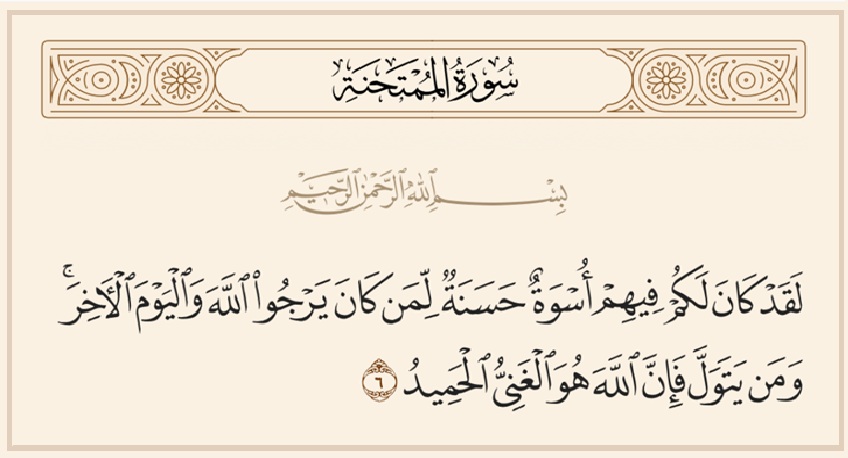 سُورَةُ المُمْتَحنَةِ
بِسْمِ ٱللَّهِ ٱلرَّحْمَٰنِ ٱلرَّحِيمِ
لَقَدْ كَانَ لَكُمْ فِيهِمْ أُسْوَةٌ حَسَنَةٌ لِّمَن كَانَ يَرْجُوا۟ ٱللَّهَ وَٱلْيَوْمَ ٱلْأَخِرَ ۚ
وَمَن يَتَوَلَّ فَإِنَّ ٱللَّهَ هُوَ ٱلْغَنِىُّ ٱلْحَمِيدُ ٦